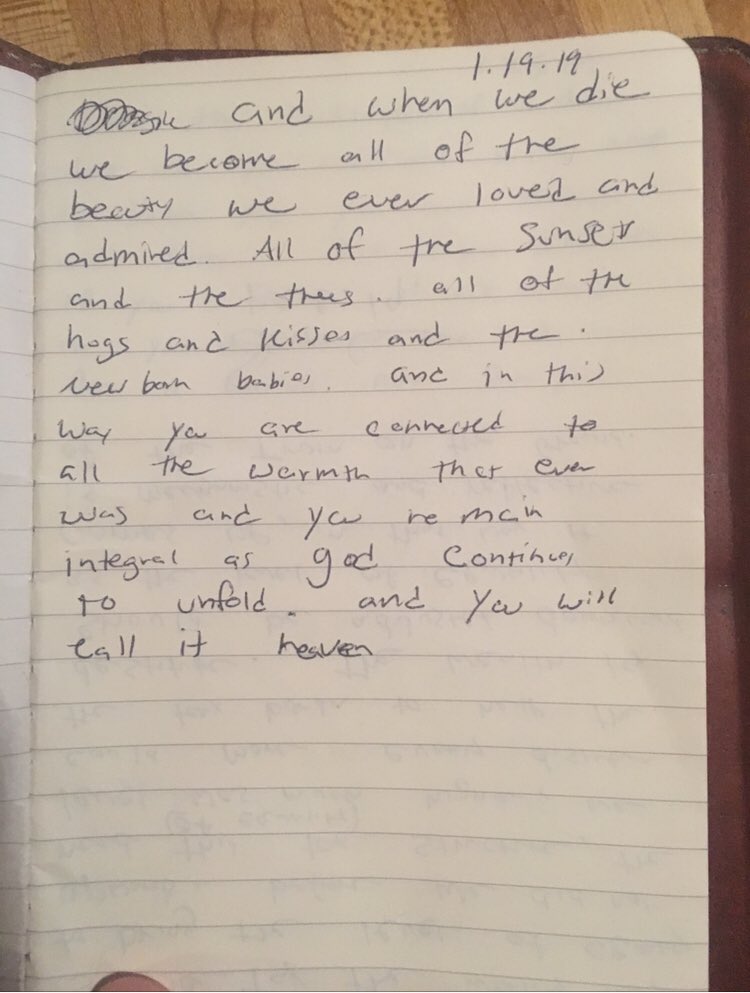 1.19.19
and when we die
we become all of the
beauty we ever loved and
admired. All of the sunset
and the trees. all of the
hugs and kisses and the
new born babies. and in this
way you are connected to
all the warmth that ever
was and you remain
integral as god continues
to unfold. and you will
call it heaven